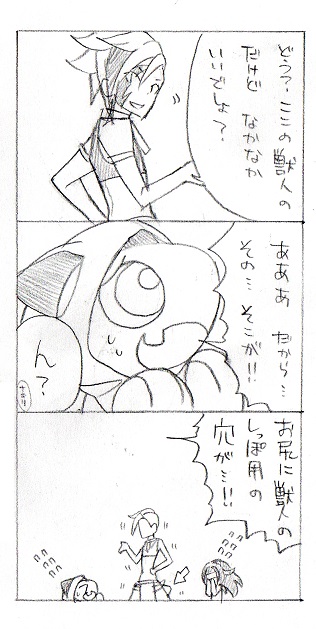 どう？ここの獣人の
だけど なかなか
いいでしょ？
あああ だから…
その… そこが!!
ん？
お尻に獣人の
しっぽ用の
穴が…!!